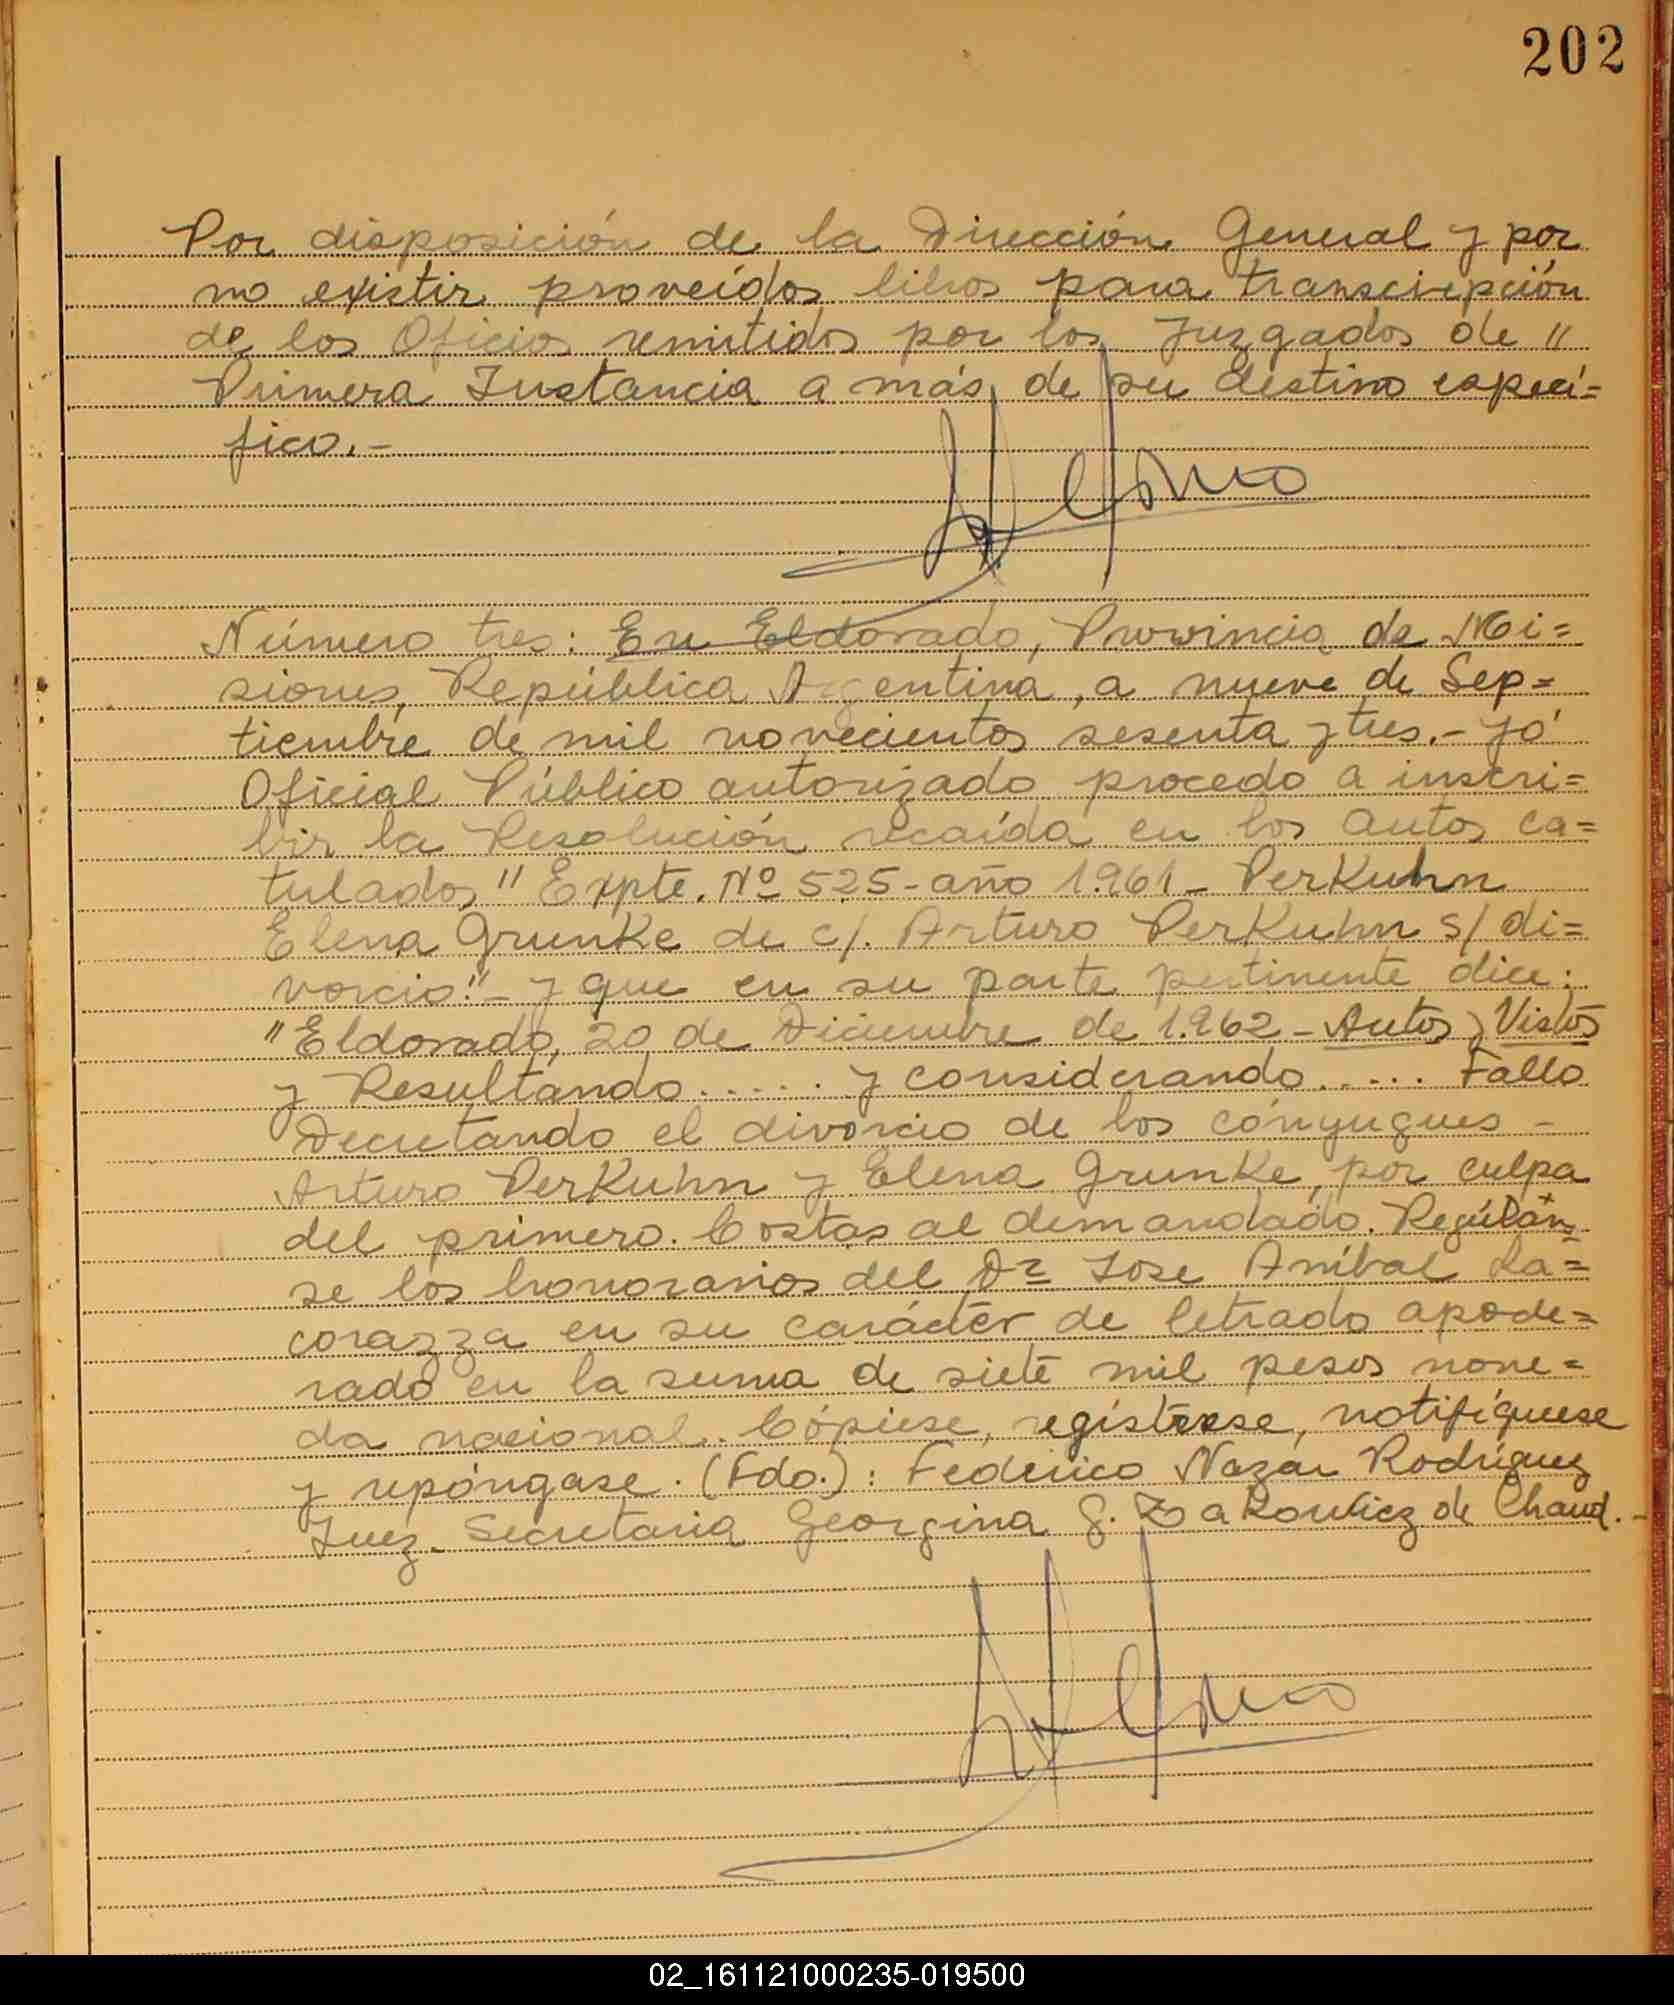 202
Por disposición de la Dirección General y por
no existir proveídos libros para transcripción
de los Oficios remitidos por los Juzgados de "
Primera Instancia a más de su destino especí=
fico.-
Número tres: En Eldorado, Provincia de Mi=
siones, República Argentina, a nueve de Sep=
tiembre de mil novecientos sesenta y tres.- Yó
Oficial Público autorizado procedo a inscri=
bir la Resolución recaída en los autos ca=
tulados "Expte. Nº 525- año 1.961- PerKuhn
Elena GrunKe de c/. Arturo PerKuhn s/ di=
vorcio."- y que en su parte pertinente dice:
"Eldorado, 20 de Diciembre de 1.962- Autos y Vistos
y Resultando...... y considerando..... Fallo
Decretando el divorcio de los cónyugues -
Arturo PerKuhn y Elena GrunKe, por culpa
del primero. Costas al demandado. Regúlan
se los honorarios del Dr Jose Aníbal La=
corazza en su carácter de letrado apode=
rado en la suma de siete mil pesos mone=
da nacional. Cópiese, regístrese, notifíquese
y repóngase. (Fdo.): Federico Nazar Rodríguez
Juez- Secretaria Georgina G. ZaKowicz de Chaud.-
02_161121000235-019500